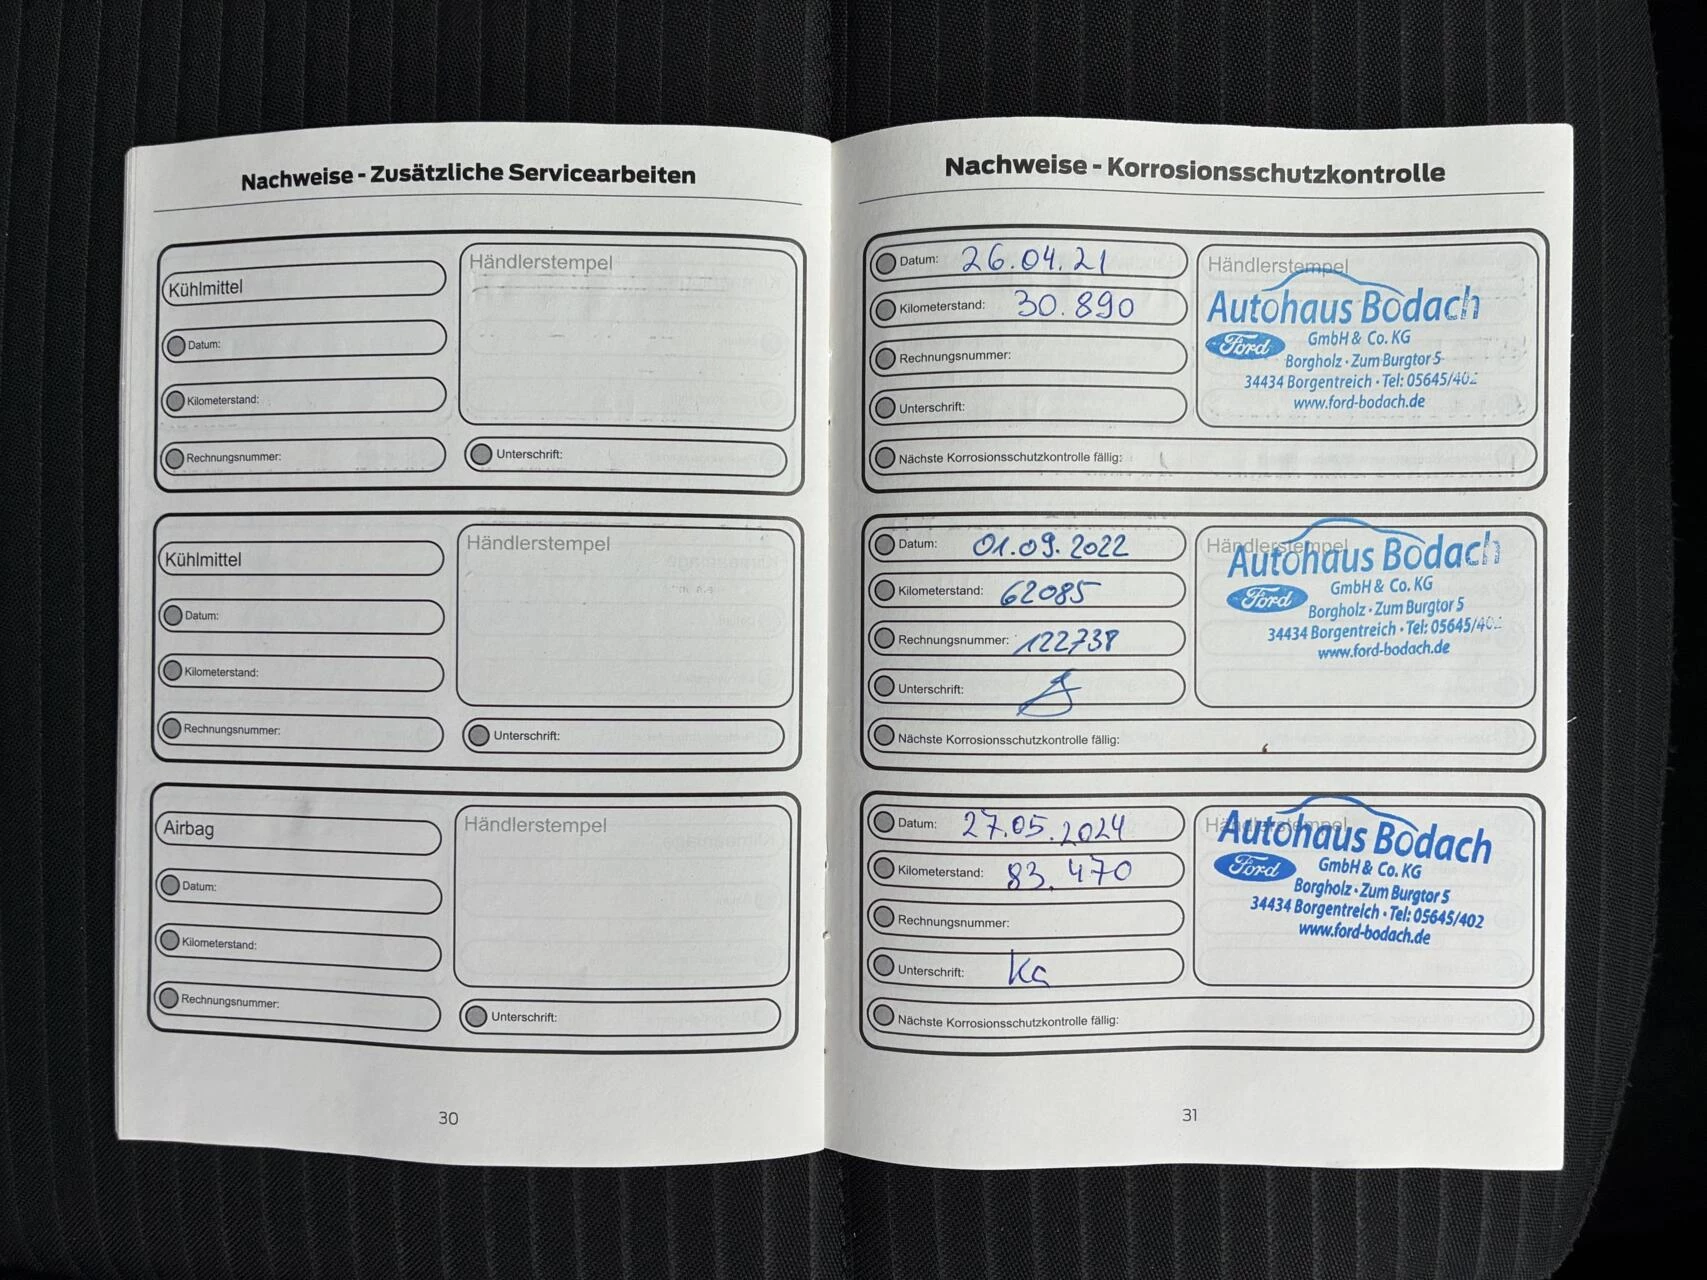 Nachweise - Zusätzliche Servicearbeiten
Kühlmittel
Händlerstempel
Datum:
Kilometerstand:
Rechnungsnummer:
Unterschrift:
Kühlmittel
Händlerstempel
Datum:
Kilometerstand:
Rechnungsnummer:
Unterschrift:
Airbag
Händlerstempel
Datum:
Kilometerstand:
Rechnungsnummer:
Unterschrift:
30
Nachweise - Korrosionsschutzkontrolle
Datum: 26.04.21
Kilometerstand: 30.890
Rechnungsnummer:
Unterschrift:
Händlerstempel
Autohaus Bodach
Ford
GmbH & Co. KG
Borgholz · Zum Burgtor 5
34434 Borgentreich · Tel: 05645/402
www.ford-bodach.de
Nächste Korrosionsschutzkontrolle fällig:
Datum: 01.09.2022
Kilometerstand: 62085
Rechnungsnummer: 122738
Unterschrift:
Händlerstempel
Autohaus Bodach
Ford
GmbH & Co. KG
Borgholz · Zum Burgtor 5
34434 Borgentreich · Tel: 05645/402
www.ford-bodach.de
Nächste Korrosionsschutzkontrolle fällig:
Datum: 27.05.2024
Kilometerstand: 83.470
Rechnungsnummer:
Unterschrift:
Händlerstempel
Autohaus Bodach
Ford
GmbH & Co. KG
Borgholz · Zum Burgtor 5
34434 Borgentreich · Tel: 05645/402
www.ford-bodach.de
Nächste Korrosionsschutzkontrolle fällig:
31